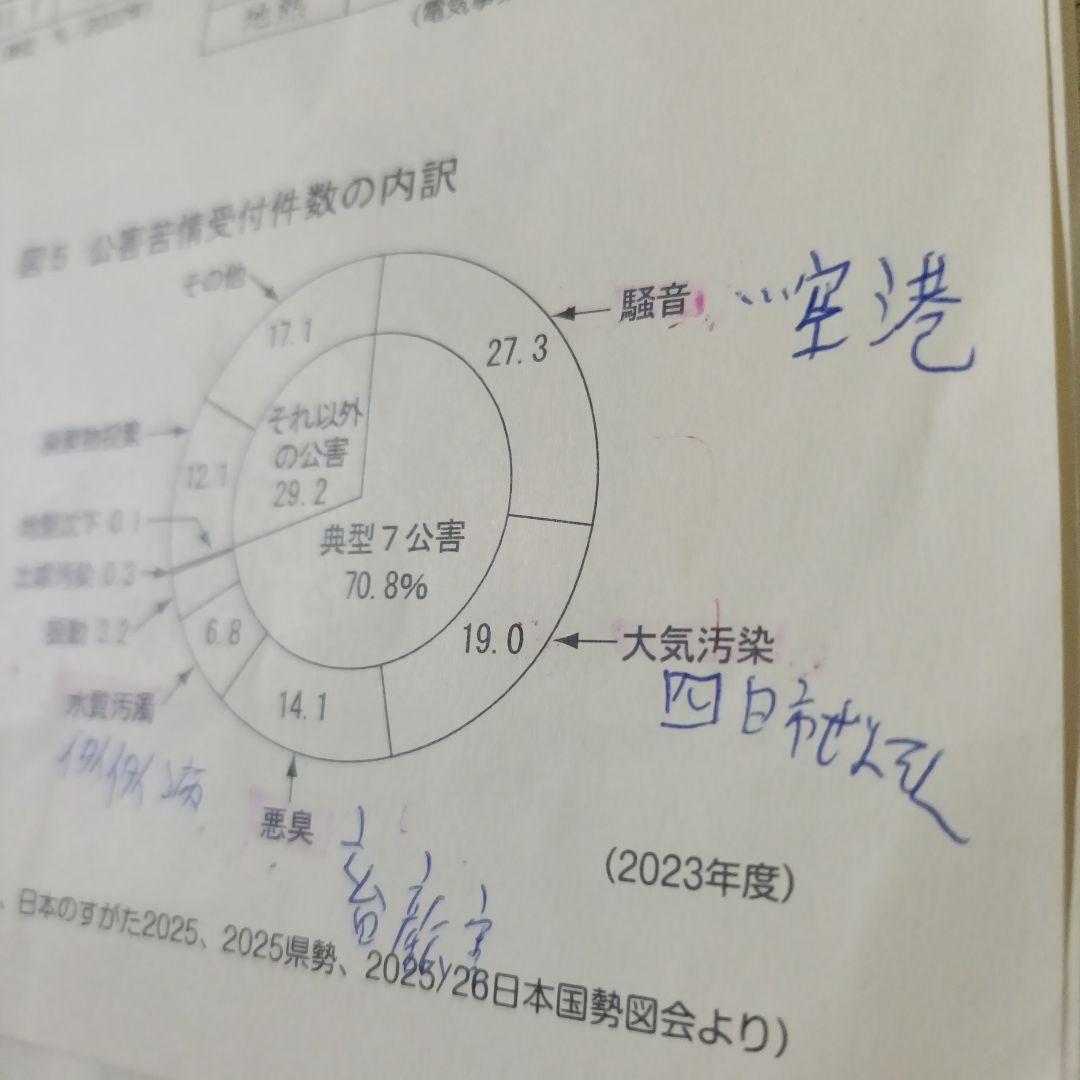 地熱
(電気事
図5 公害苦情受付件数の内訳
その他
17.1
騒音
空港
27.3
それ以外
の公害
29.2
廃棄物投棄
12.1
地盤沈下 0.1
土壌汚染 0.3
振動 3.2
典型7公害
70.8%
6.8
19.0
大気汚染
四日市ぜんそく
水質汚濁
14.1
悪臭
(2023年度)
、日本のすがた2025、2025県勢、2025/26日本国勢図会より)